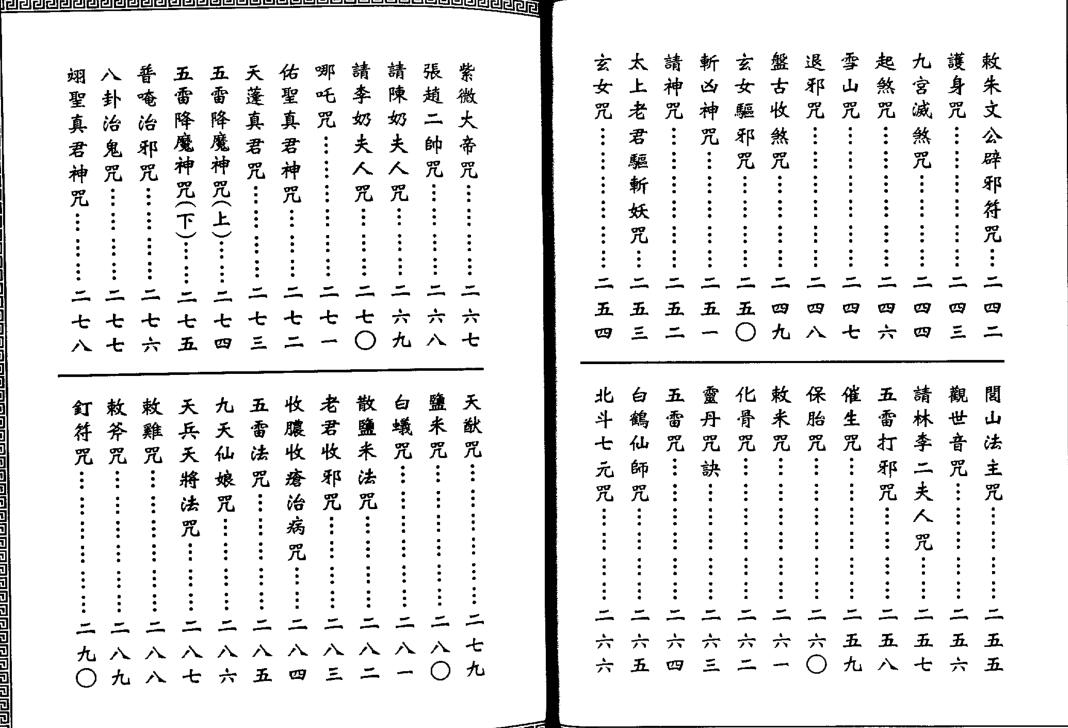 敕朱文公辟邪符咒…二四二
護身咒………………二四三
九宮滅煞咒…………二四四
起煞咒………………二四六
雪山咒………………二四七
退邪咒………………二四八
盤古收煞咒…………二四九
玄女驅邪咒…………二五〇
斬凶神咒……………二五一
請神咒………………二五二
太上老君驅斬妖咒…二五三
玄女咒………………二五四
閭山法主咒…………二五五
觀世音咒……………二五六
請林李二夫人咒……二五七
五雷打邪咒…………二五八
催生咒………………二五九
保胎咒………………二六〇
敕米咒………………二六一
化骨咒………………二六二
靈丹咒訣……………二六三
五雷咒………………二六四
白鶴仙師咒…………二六五
北斗七元咒…………二六六
紫微大帝咒…………二六七
張趙二帥咒…………二六八
請陳奶夫人咒………二六九
請李奶夫人咒………二七〇
哪吒咒………………二七一
佑聖真君神咒………二七二
天蓬真君咒…………二七三
五雷降魔神咒(上)…二七四
五雷降魔神咒(下)…二七五
普唵治邪咒…………二七六
八卦治鬼咒…………二七七
翊聖真君神咒………二七八
天猷咒………………二七九
鹽米咒………………二八〇
白蟻咒………………二八一
散鹽米法咒…………二八二
老君收邪咒…………二八三
收膿收瘡治病咒……二八四
五雷法咒……………二八五
九天仙娘咒…………二八六
天兵天將法咒………二八七
敕雞咒………………二八八
敕斧咒………………二八九
釘符咒………………二九〇